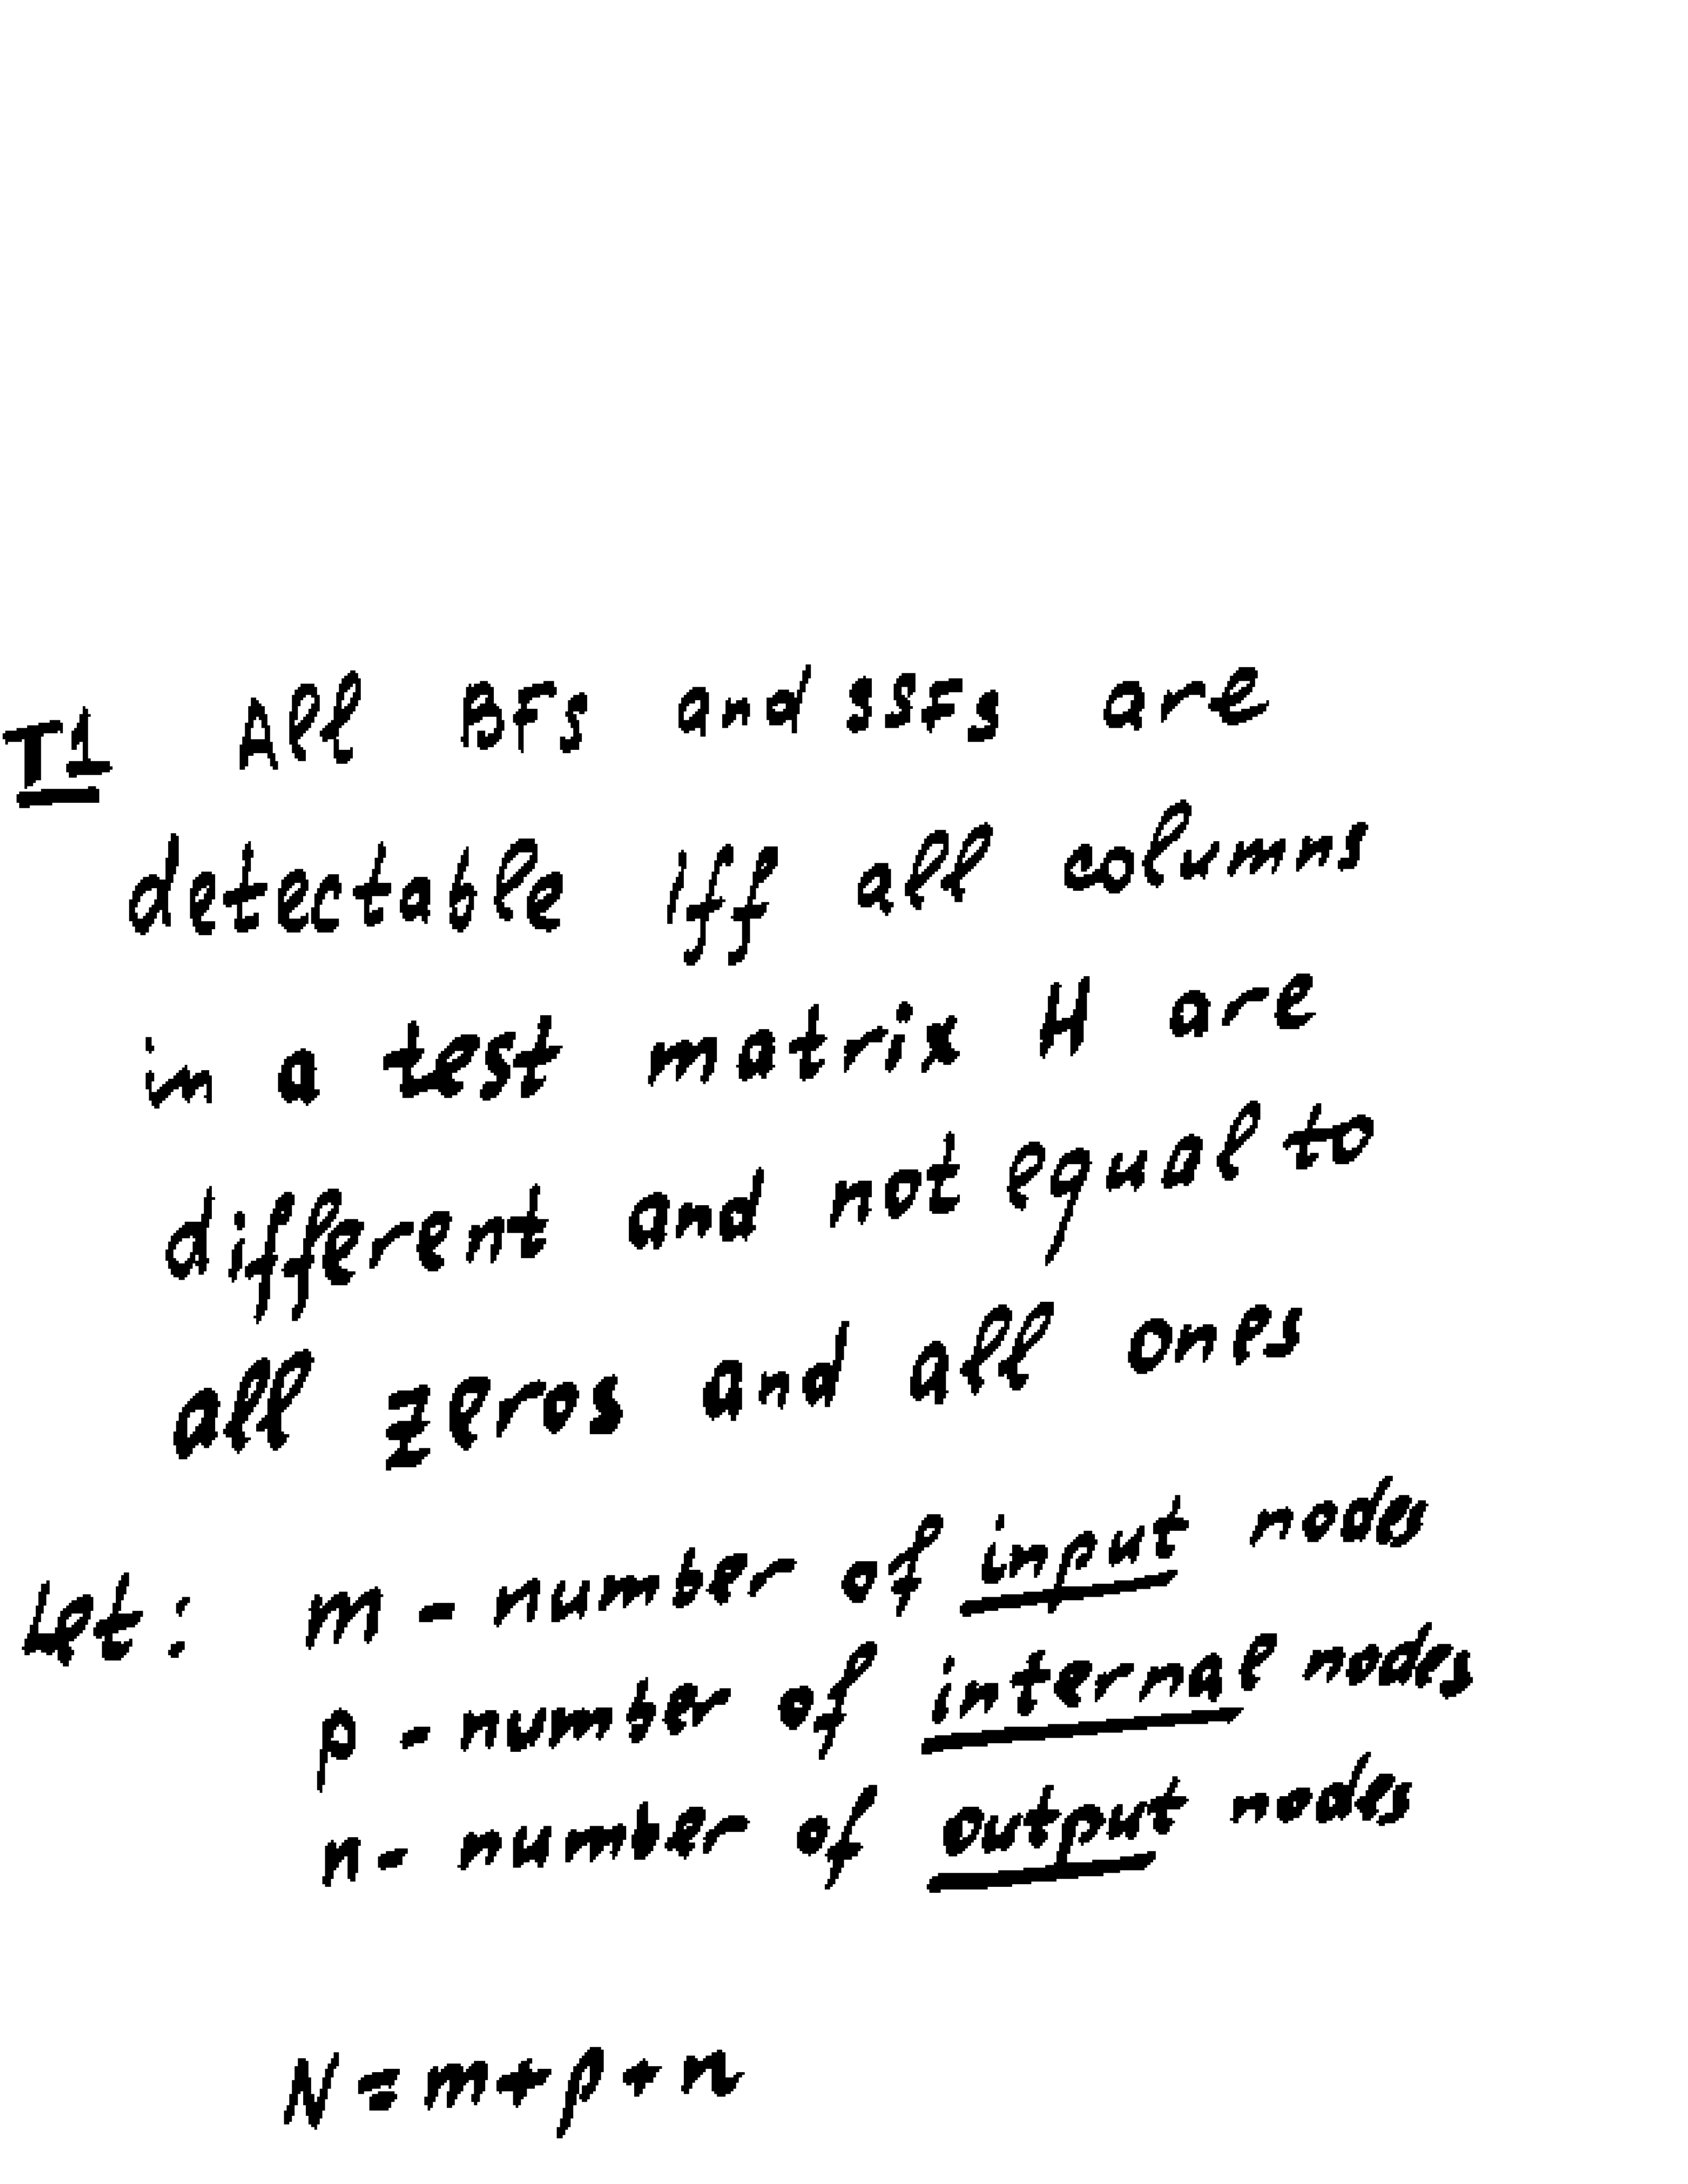 T1 All BFs and SSFs are
detectable iff all columns
in a test matrix H are
different and not equal to
all zeros and all ones
Let: m - number of input nodes
p - number of internal nodes
n - number of output nodes
N = m + p + n